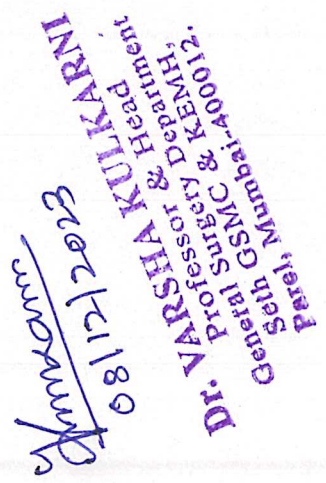 08/12/2023
Dr. VARSHA KULKARNI
Professor & Head
General Surgery Department
Seth GSMC & KEMH,
Parel, Mumbai-400012.